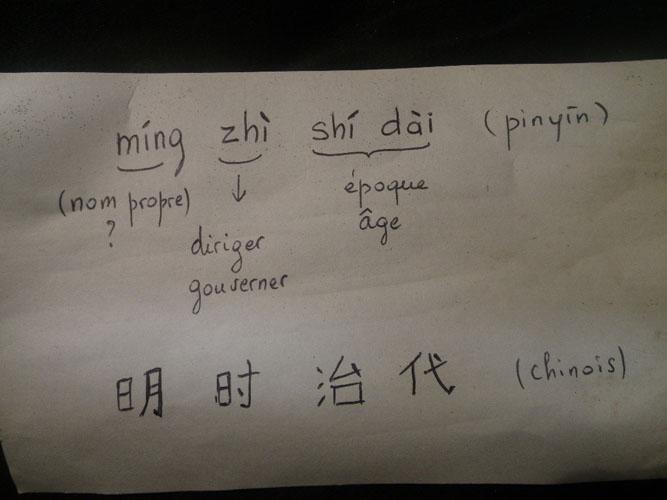 míng zhì shí dài (pinyīn)
(nom propre) ?
diriger gouverner
époque âge
明时治代 (chinois)